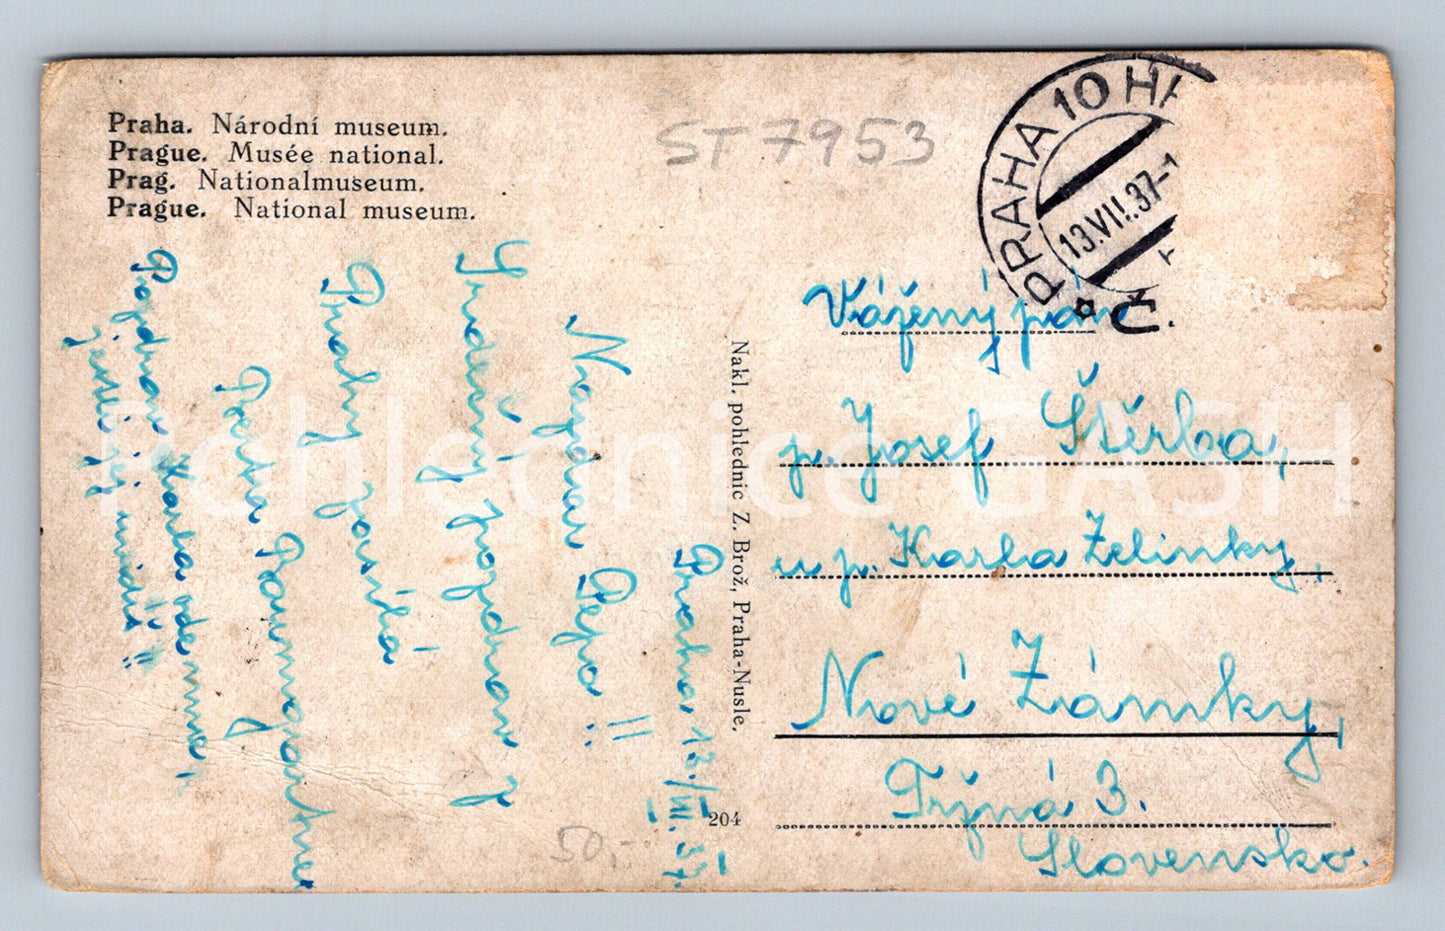 Praha. Národní museum.
Prague. Musée national.
Prag. Nationalmuseum.
Prague. National museum.
ST 7953
PRAHA 10 HR
13.VII.37-1
Č.
Praha 13./VII. 37.
Nazdar Pepo!!
Srdečný pozdrav z
Prahy posílá
Pepča Baumgartner
Pozdrav Karla ode mne,
jestli jej uvidíš!!
Nakl. pohlednic Z. Brož, Praha-Nusle.
204
50,-
Vážený pán
p. Josef Štěrba,
u p. Karla Zelinky,
Nové Zámky,
Tržná 3.
Slovensko.
Pohlednice GASH